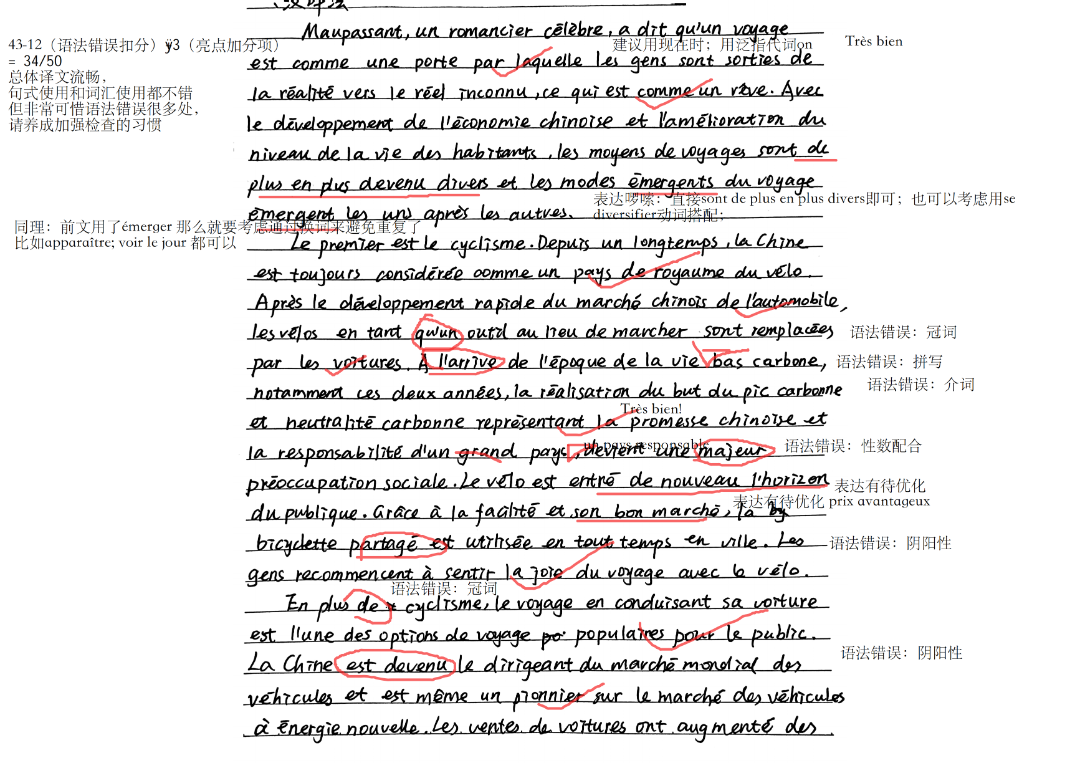 汉译法
Maupassant, un romancier célèbre, a dit qu'un voyage
43-12（语法错误扣分）+3（亮点加分项）
建议用现在时；用泛指代词on
Très bien
est comme une porte par laquelle les gens sont sorties de
= 34/50
总体译文流畅，
句式使用和词汇使用都不错
但非常可惜语法错误很多处，
请养成加强检查的习惯
la réalité vers le réel inconnu, ce qui est comme un rêve. Avec
le développement de l'économie chinoise et l'amélioration du
niveau de la vie des habitants, les moyens de voyages sont de
plus en plus devenu divers et les modes émergents du voyage
表达啰嗦；直接sont de plus en plus divers即可；也可以考虑用se
diversifier动词搭配；
émergent les uns après les autres.
同理：前文用了émerger 那么就要考虑通过换词来避免重复了
比如apparaître; voir le jour 都可以
Le premier est le cyclisme. Depuis un longtemps, la Chine
est toujours considérée comme un pays de royaume du vélo.
Après le développement rapide du marché chinois de l'automobile,
les vélos en tant qu'un outil au lieu de marcher sont remplacées
语法错误：冠词
par les voitures. À l'arrive de l'époque de la vie bas carbone,
语法错误：拼写
语法错误：介词
notamment ces deux années, la réalisation du but du pic carbone
Très bien!
et neutralité carbone représentant la promesse chinoise et
un pays responsable
la responsabilité d'un grand pays, devient une majeur
语法错误：性数配合
préoccupation sociale. Le vélo est entré de nouveau l'horizon
表达有待优化
du publique. Grâce à la facilité et son bon marché, la
表达有待优化 prix avantageux
bicyclette partagé est utilisée en tout temps en ville. Les
语法错误：阴阳性
gens recommencent à sentir la joie du voyage avec le vélo.
语法错误：冠词
En plus de cyclisme, le voyage en conduisant sa voiture
est l'une des options de voyage populaires pour le public.
La Chine est devenu le dirigeant du marché mondial des
语法错误：阴阳性
véhicules et est même un pionnier sur le marché des véhicules
à énergie nouvelle. Les ventes de voitures ont augmenté des